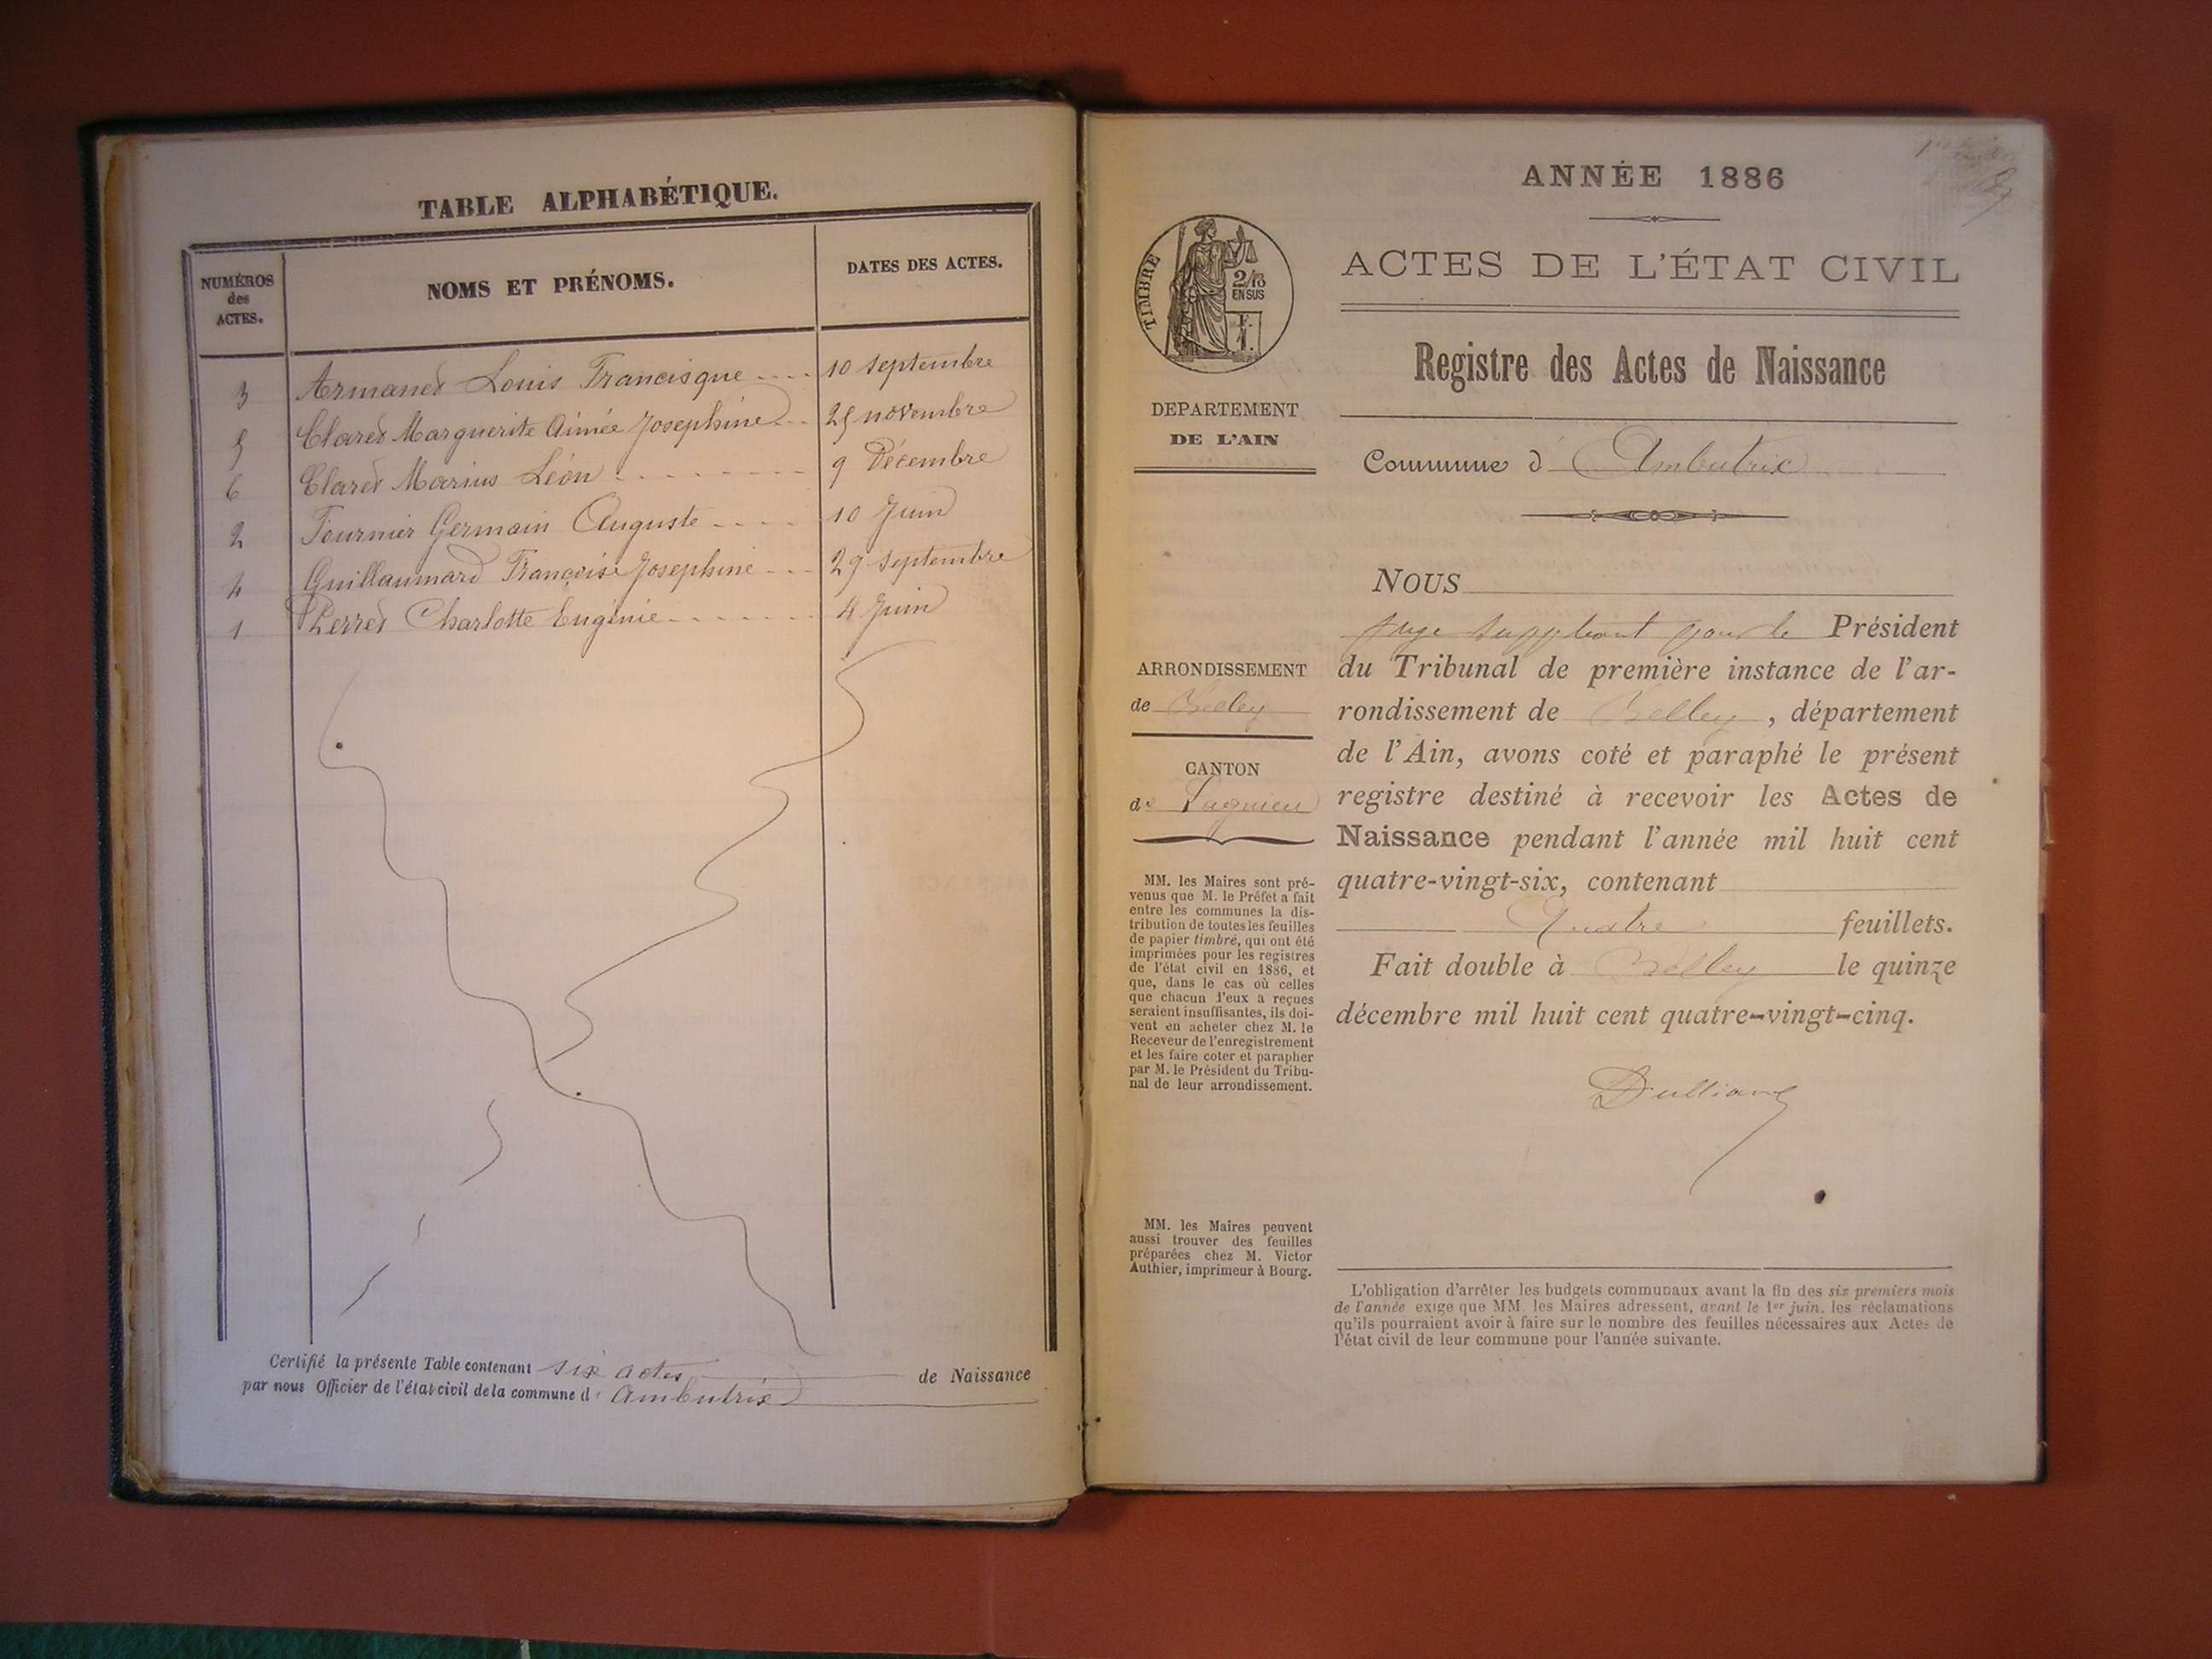 TABLE ALPHABÉTIQUE.
NUMÉROS
des
ACTES.
NOMS ET PRÉNOMS.
DATES DES ACTES.
3 Armand Louis Francisque 10 septembre
5 Claret Marguerite Aimée Joséphine 25 novembre
6 Claret Marius Léon 9 Décembre
2 Fournier Germain Auguste 10 Juin
4 Guillaumard Françoise Joséphine 29 septembre
1 Perret Charlotte Eugénie 4 Juin
Certifié la présente Table contenant six actes de Naissance
par nous Officier de l'état civil de la commune d' Ambutrix
ANNÉE 1886
ACTES DE L'ÉTAT CIVIL
Registre des Actes de Naissance
Commune d' Ambutrix
TIMBRE
2/10
EN SUS
DEPARTEMENT
DE L'AIN
ARRONDISSEMENT
de Belley
CANTON
de Lagnieu
MM. les Maires sont pré-
venus que M. le Préfet a fait
entre les communes la dis-
tribution de toutes les feuilles
de papier timbré, qui ont été
imprimées pour les registres
de l'état civil en 1886, et
que, dans le cas où celles
que chacun d'eux a reçues
seraient insuffisantes, ils doi-
vent en acheter chez M. le
Receveur de l'enregistrement
et les faire coter et parapher
par M. le Président du Tribu-
nal de leur arrondissement.
MM. les Maires peuvent
aussi trouver des feuilles
préparées chez M. Victor
Authier, imprimeur à Bourg.
NOUS
Juge suppléant pour le Président
du Tribunal de première instance de l'ar-
rondissement de Belley, département
de l'Ain, avons coté et paraphé le présent
registre destiné à recevoir les Actes de
Naissance pendant l'année mil huit cent
quatre-vingt-six, contenant
Quatre feuillets.
Fait double à Belley le quinze
décembre mil huit cent quatre-vingt-cinq.
L'obligation d'arrêter les budgets communaux avant la fin des six premiers mois
de l'année exige que MM. les Maires adressent, avant le 1er juin, les réclamations
qu'ils pourraient avoir à faire sur le nombre des feuilles nécessaires aux Actes de
l'état civil de leur commune pour l'année suivante.